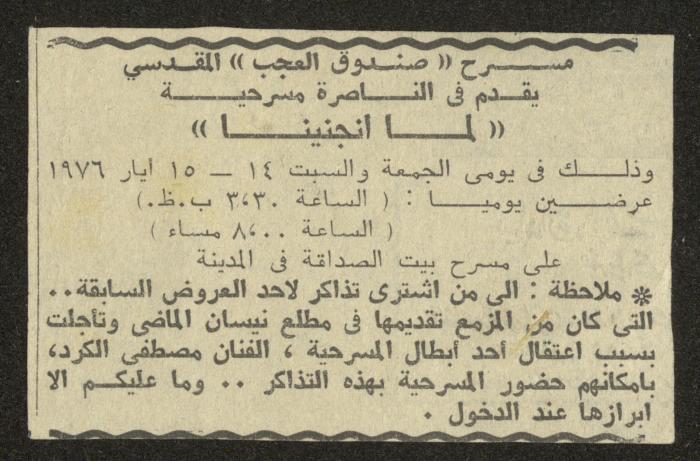 مسرح «صندوق العجب» المقدسي
يقدم فى الناصرة مسرحية
«لما انجنينا»
وذلك فى يومى الجمعة والسبت ١٤ ــ ١٥ ايار ١٩٧٦
عرضين يوميا : ( الساعة ٣،٣٠ ب.ظ.)
( الساعة ٨،٠٠ مساء )
على مسرح بيت الصداقة فى المدينة
* ملاحظة : الى من اشترى تذاكر لاحد العروض السابقة..
التى كان من المزمع تقديمها فى مطلع نيسان الماضى وتأجلت
بسبب اعتقال أحد أبطال المسرحية ، الفنان مصطفى الكرد،
بامكانهم حضور المسرحية بهذه التذاكر .. وما عليكم الا
ابرازها عند الدخول .